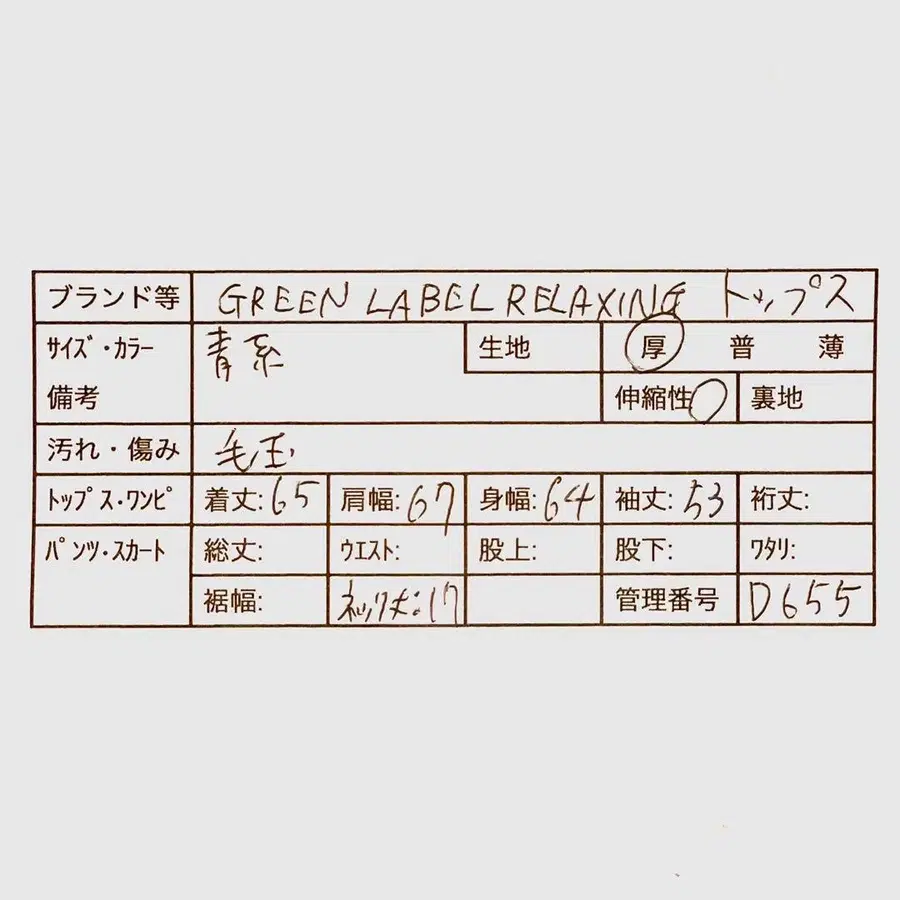 ブランド等 GREEN LABEL RELAXING トップス
サイズ・カラー 青系 生地 厚 普 薄
備考 伸縮性○ 裏地
汚れ・傷み 毛玉
トップス・ワンピ 着丈:65 肩幅:67 身幅:64 袖丈:53 裄丈:
パンツ・スカート 総丈: ウエスト: 股上: 股下: ワタリ:
裾幅: ネック丈:17 管理番号 D655